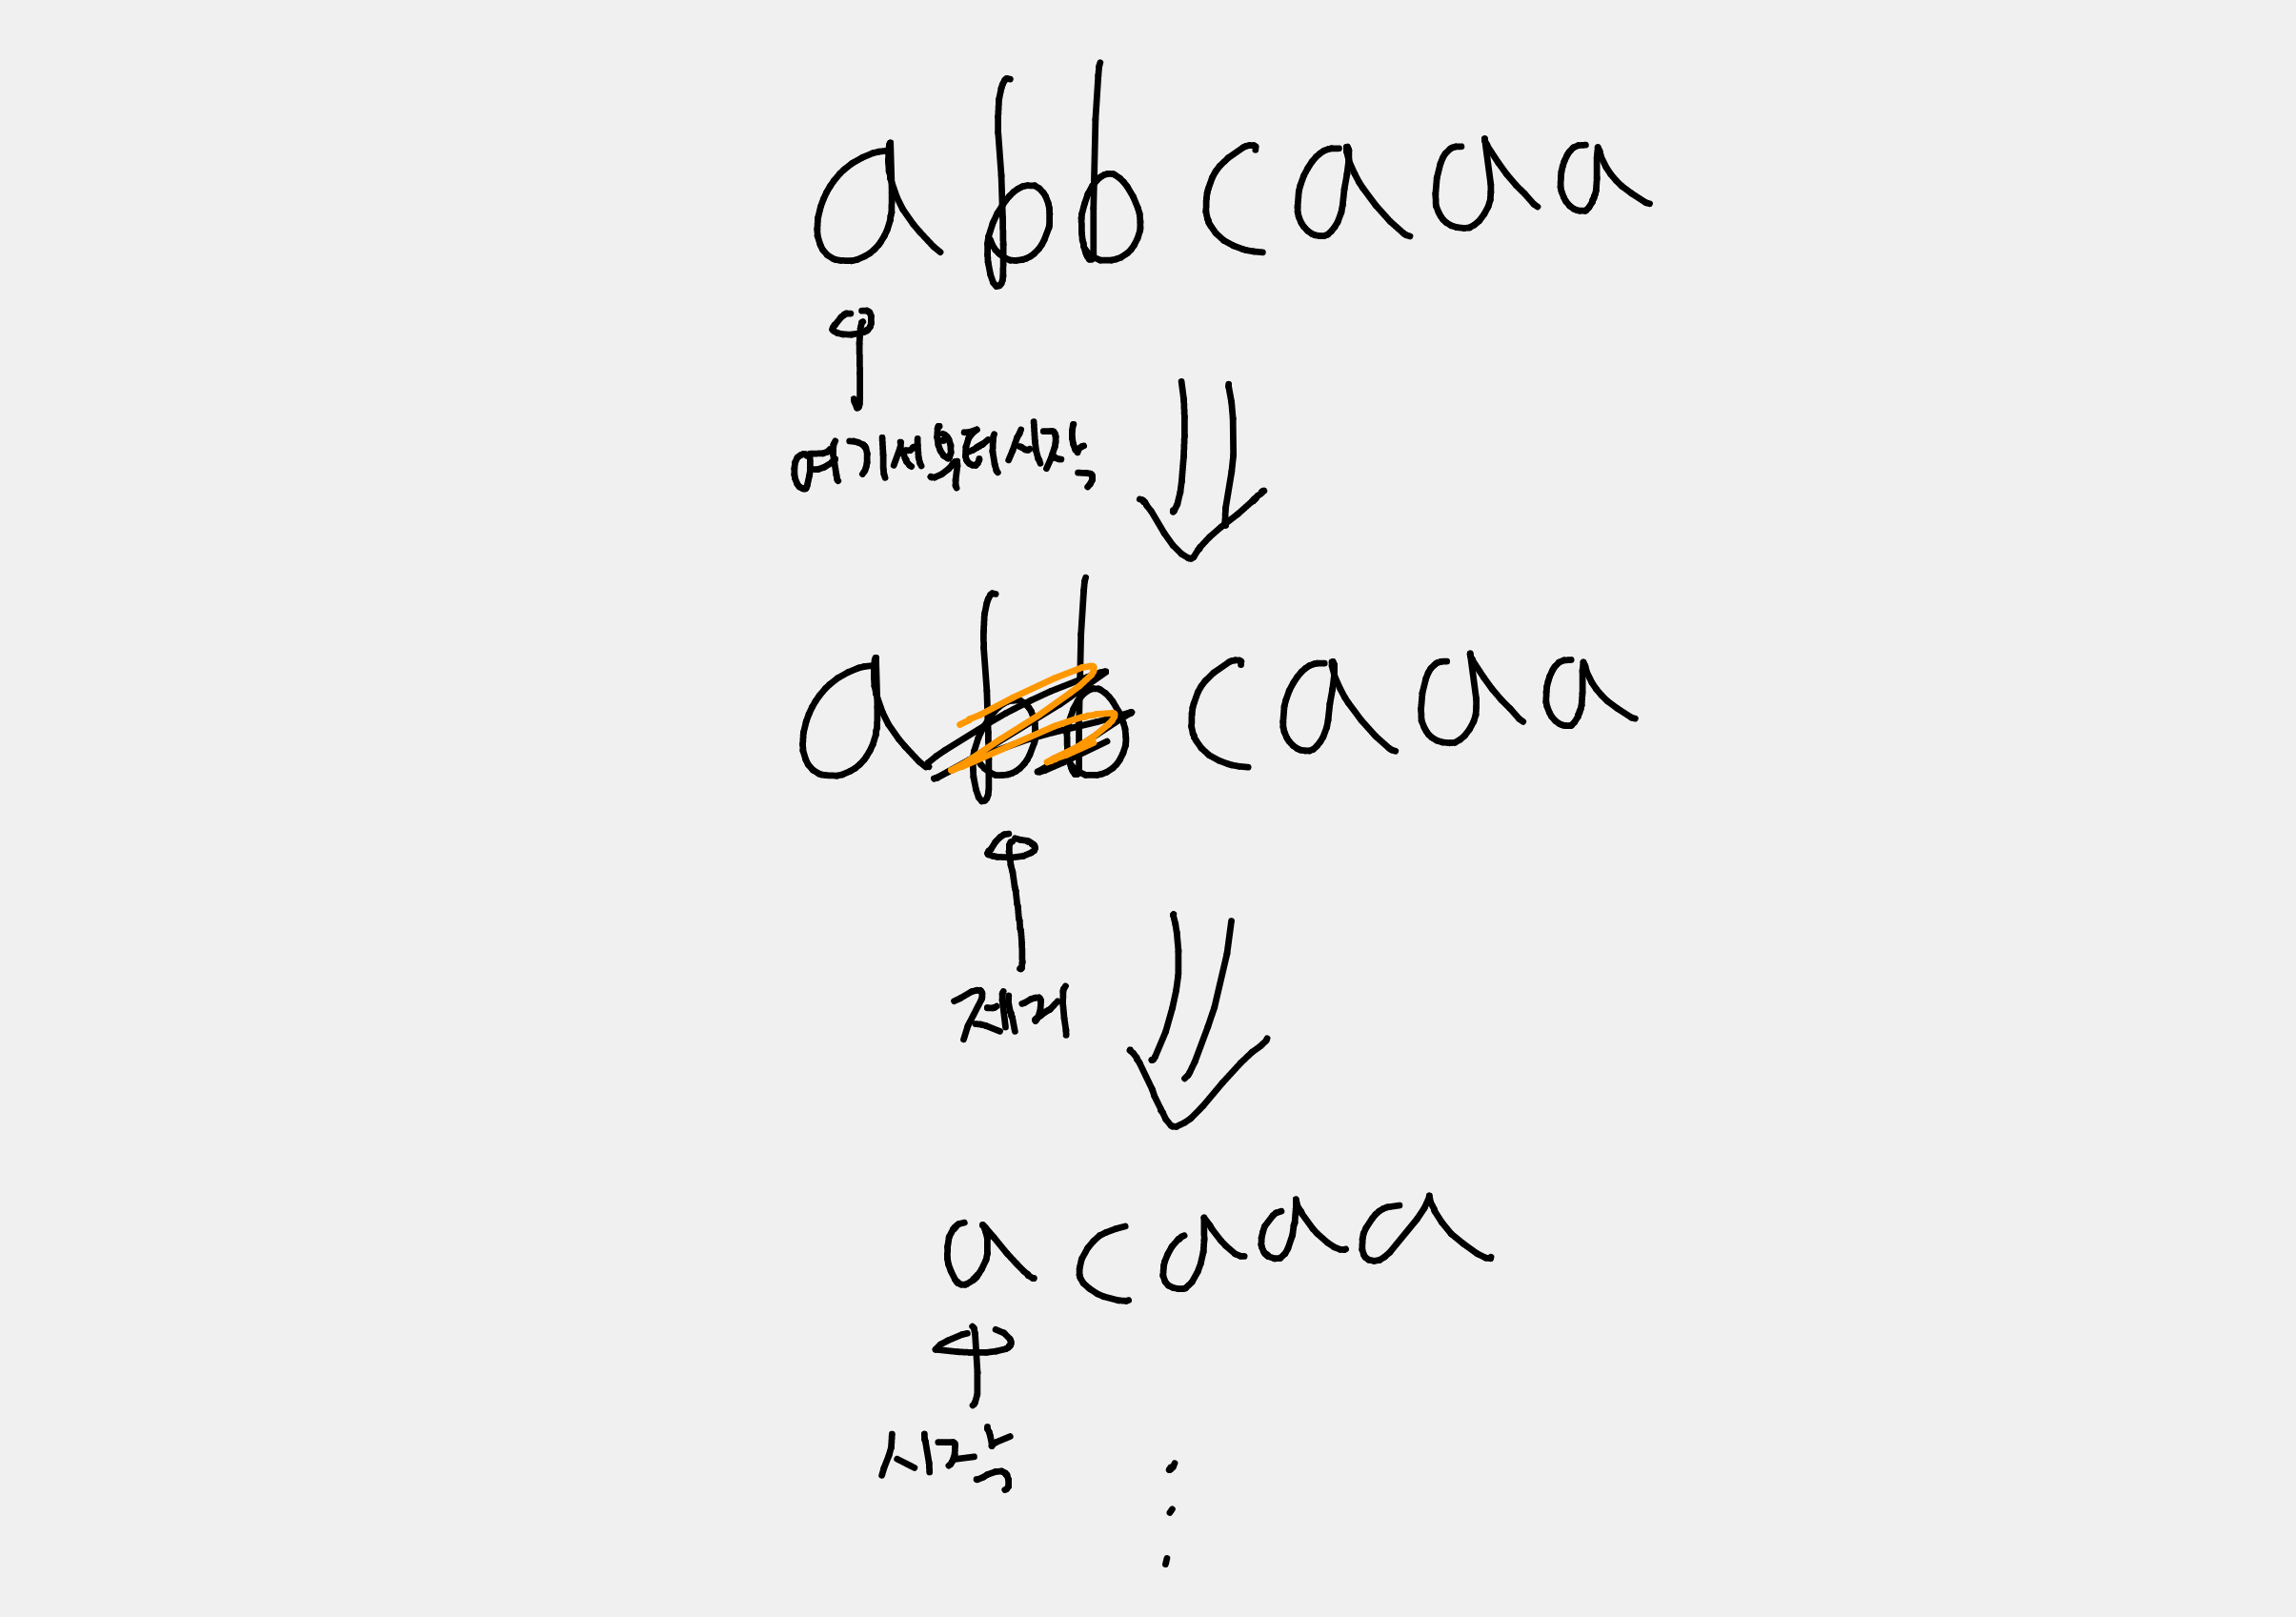 abbcaaa
여기서부터 시작
abbcaaa
제거
acaaa
시작